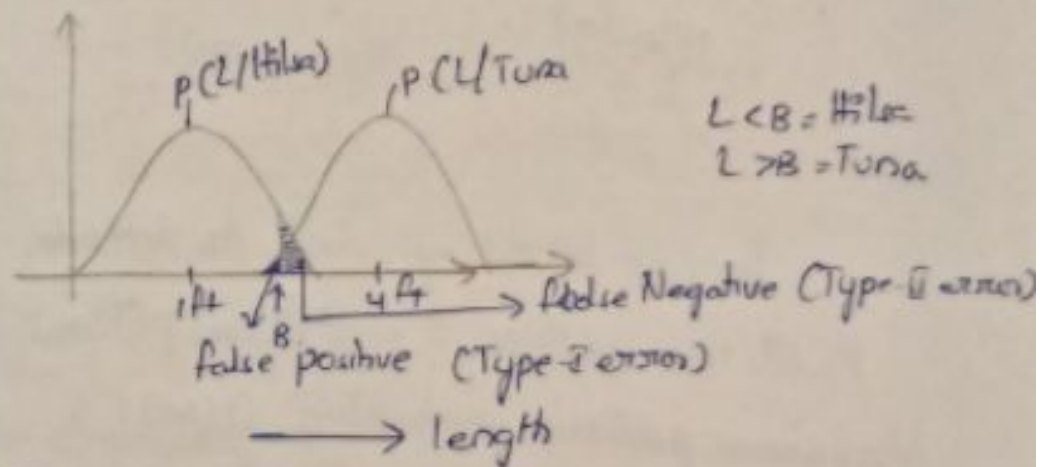 P(L/Hilsa)
P(L/Tuna
L<B = Hilsa
L>B = Tuna
1ft
B
4 ft
False Negative (Type-II error)
false positive (Type-I error)
length